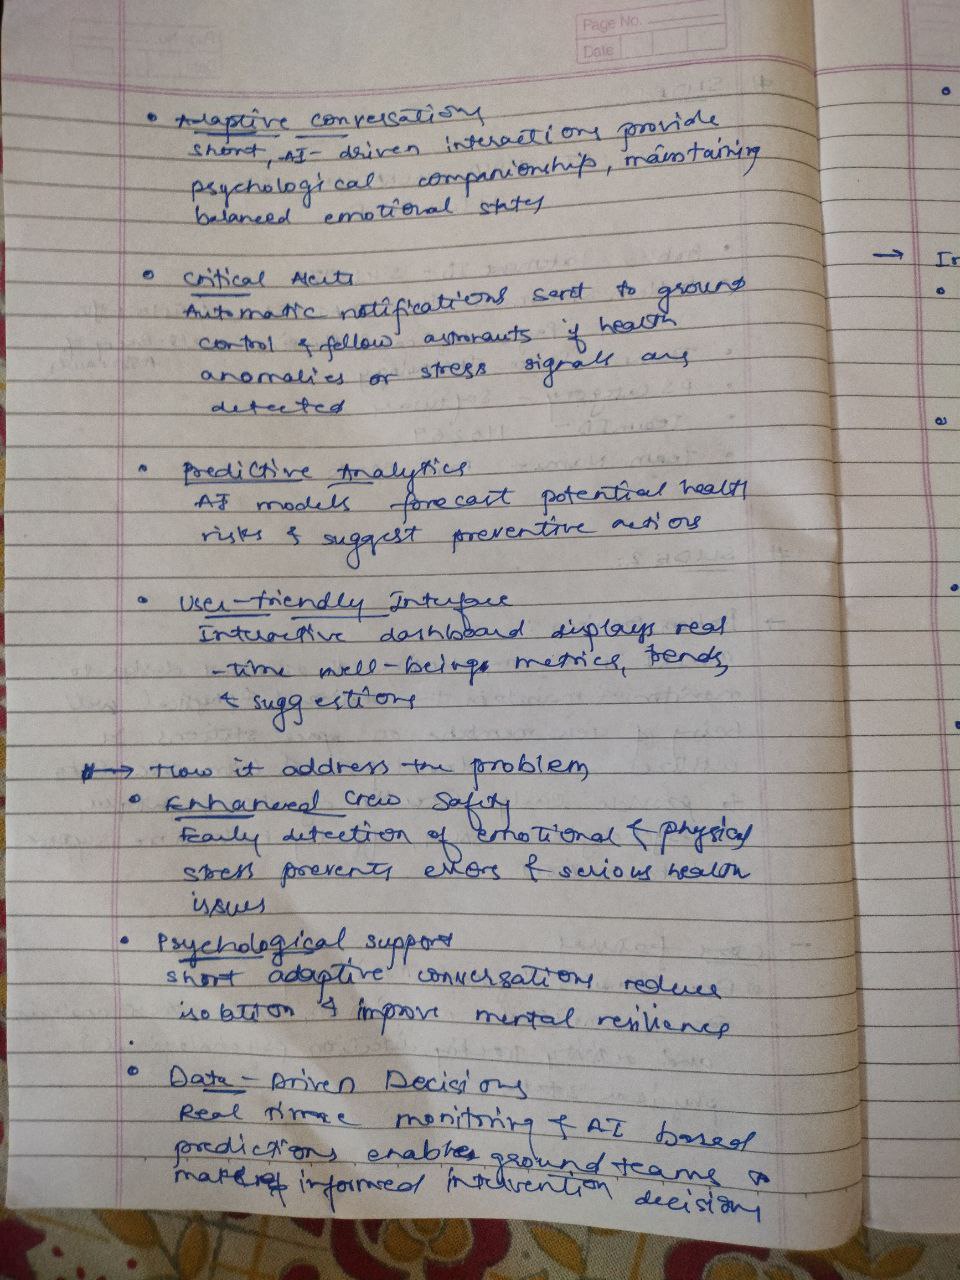 Page No.
Date
• Adaptive conversations
short, AI-driven interactions provide
psychological companionship, maintaining
balanced emotional states
• Critical Alerts
Automatic notifications sent to ground
control & fellow astronauts if health
anomalies or stress signals are
detected
• Predictive Analytics
AI models forecast potential health
risks & suggest preventive actions
• User-friendly Interface
Interactive dashboard displays real
-time well-being metrics, trends,
& suggestions
→ How it address the problem
• Enhanced Crew Safety
Early detection of emotional & physical
stress prevents errors & serious health
issues
• Psychological support
short adaptive conversations reduce
isolation & improve mental resilience
• Data-Driven Decisions
Real time monitoring & AI based
predictions enables ground teams to
make informed intervention decisions
→ In